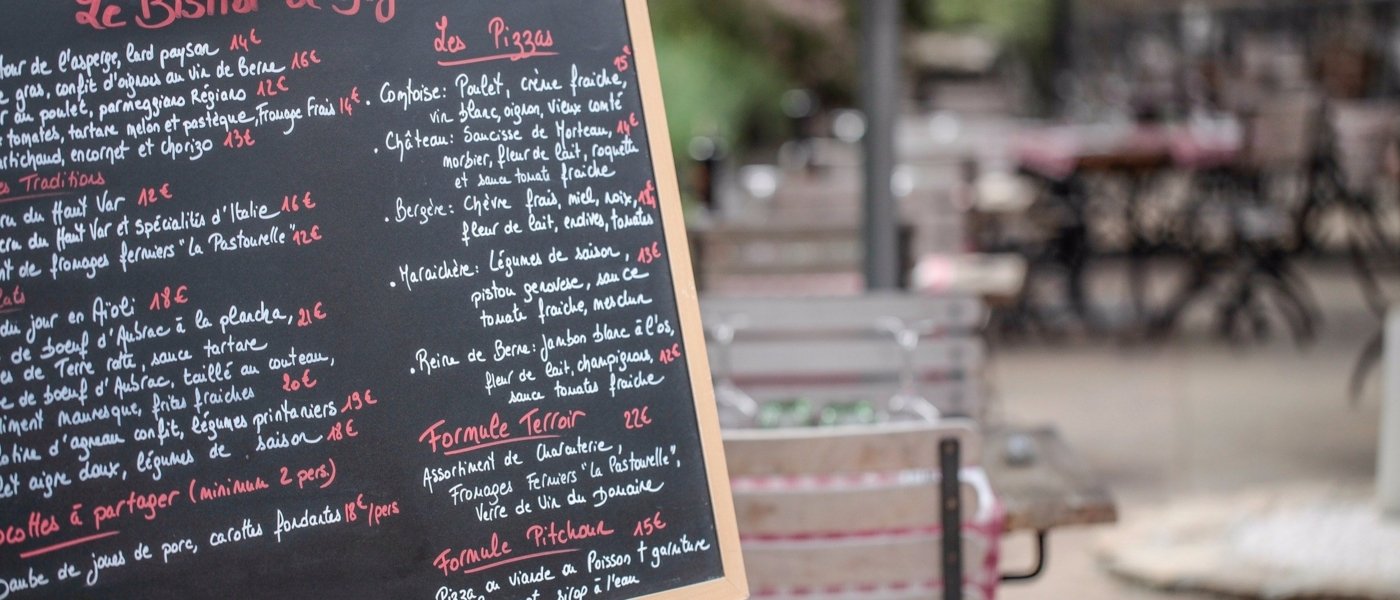 Le Bistrot de
tour de l'asperge, lard paysan 14€
gras, confit d'oignons au vin de Berne 16€
au poulet, parmeggiano Régiano 12€
tomates, tartare melon et pastèque, Fromage Frais 14€
artichaud, encornet et chorizo 13€
Traditions
du Haut Var 12€
du Haut Var et Spécialités d'Italie 16€
de fromages fermiers "la Pastourelle" 12€
du jour en Aïoli 18€
de boeuf d'Aubrac à la plancha, 21€
de Terre ratte, sauce tartare
de boeuf d'Aubrac, taillé au couteau,
mauresque, frites fraiches 20€
d'agneau confit, légumes printaniers 19€
aigre doux, légumes de saison 18€
à partager (minimum 2 pers.)
Daube de joues de porc, carottes fondantes 18€/pers
Les Pizzas
. Comtoise: Poulet, crème fraiche, 15€
vin blanc, oignon, vieux comté
. Château: Saucisse de Morteau, 14€
morbier, fleur de lait, roquette
et sauce tomate fraiche
. Bergère: Chèvre frais, miel, noix,
fleur de lait, endives, tomates
. Maraichère: Légumes de saison, 13€
pistou genovese, sauce
tomate fraiche, mesclun
. Reine de Berne: Jambon blanc à l'os,
fleur de lait, champignons, 12€
sauce tomates fraiche
Formule Terroir 22€
Assortiment de Charcuterie,
Fromages Fermiers "La Pastourelle",
Verre de Vin du Domaine
Formule Pitchoun 15€
Pizza ou viande ou Poisson + garniture
sirop à l'eau